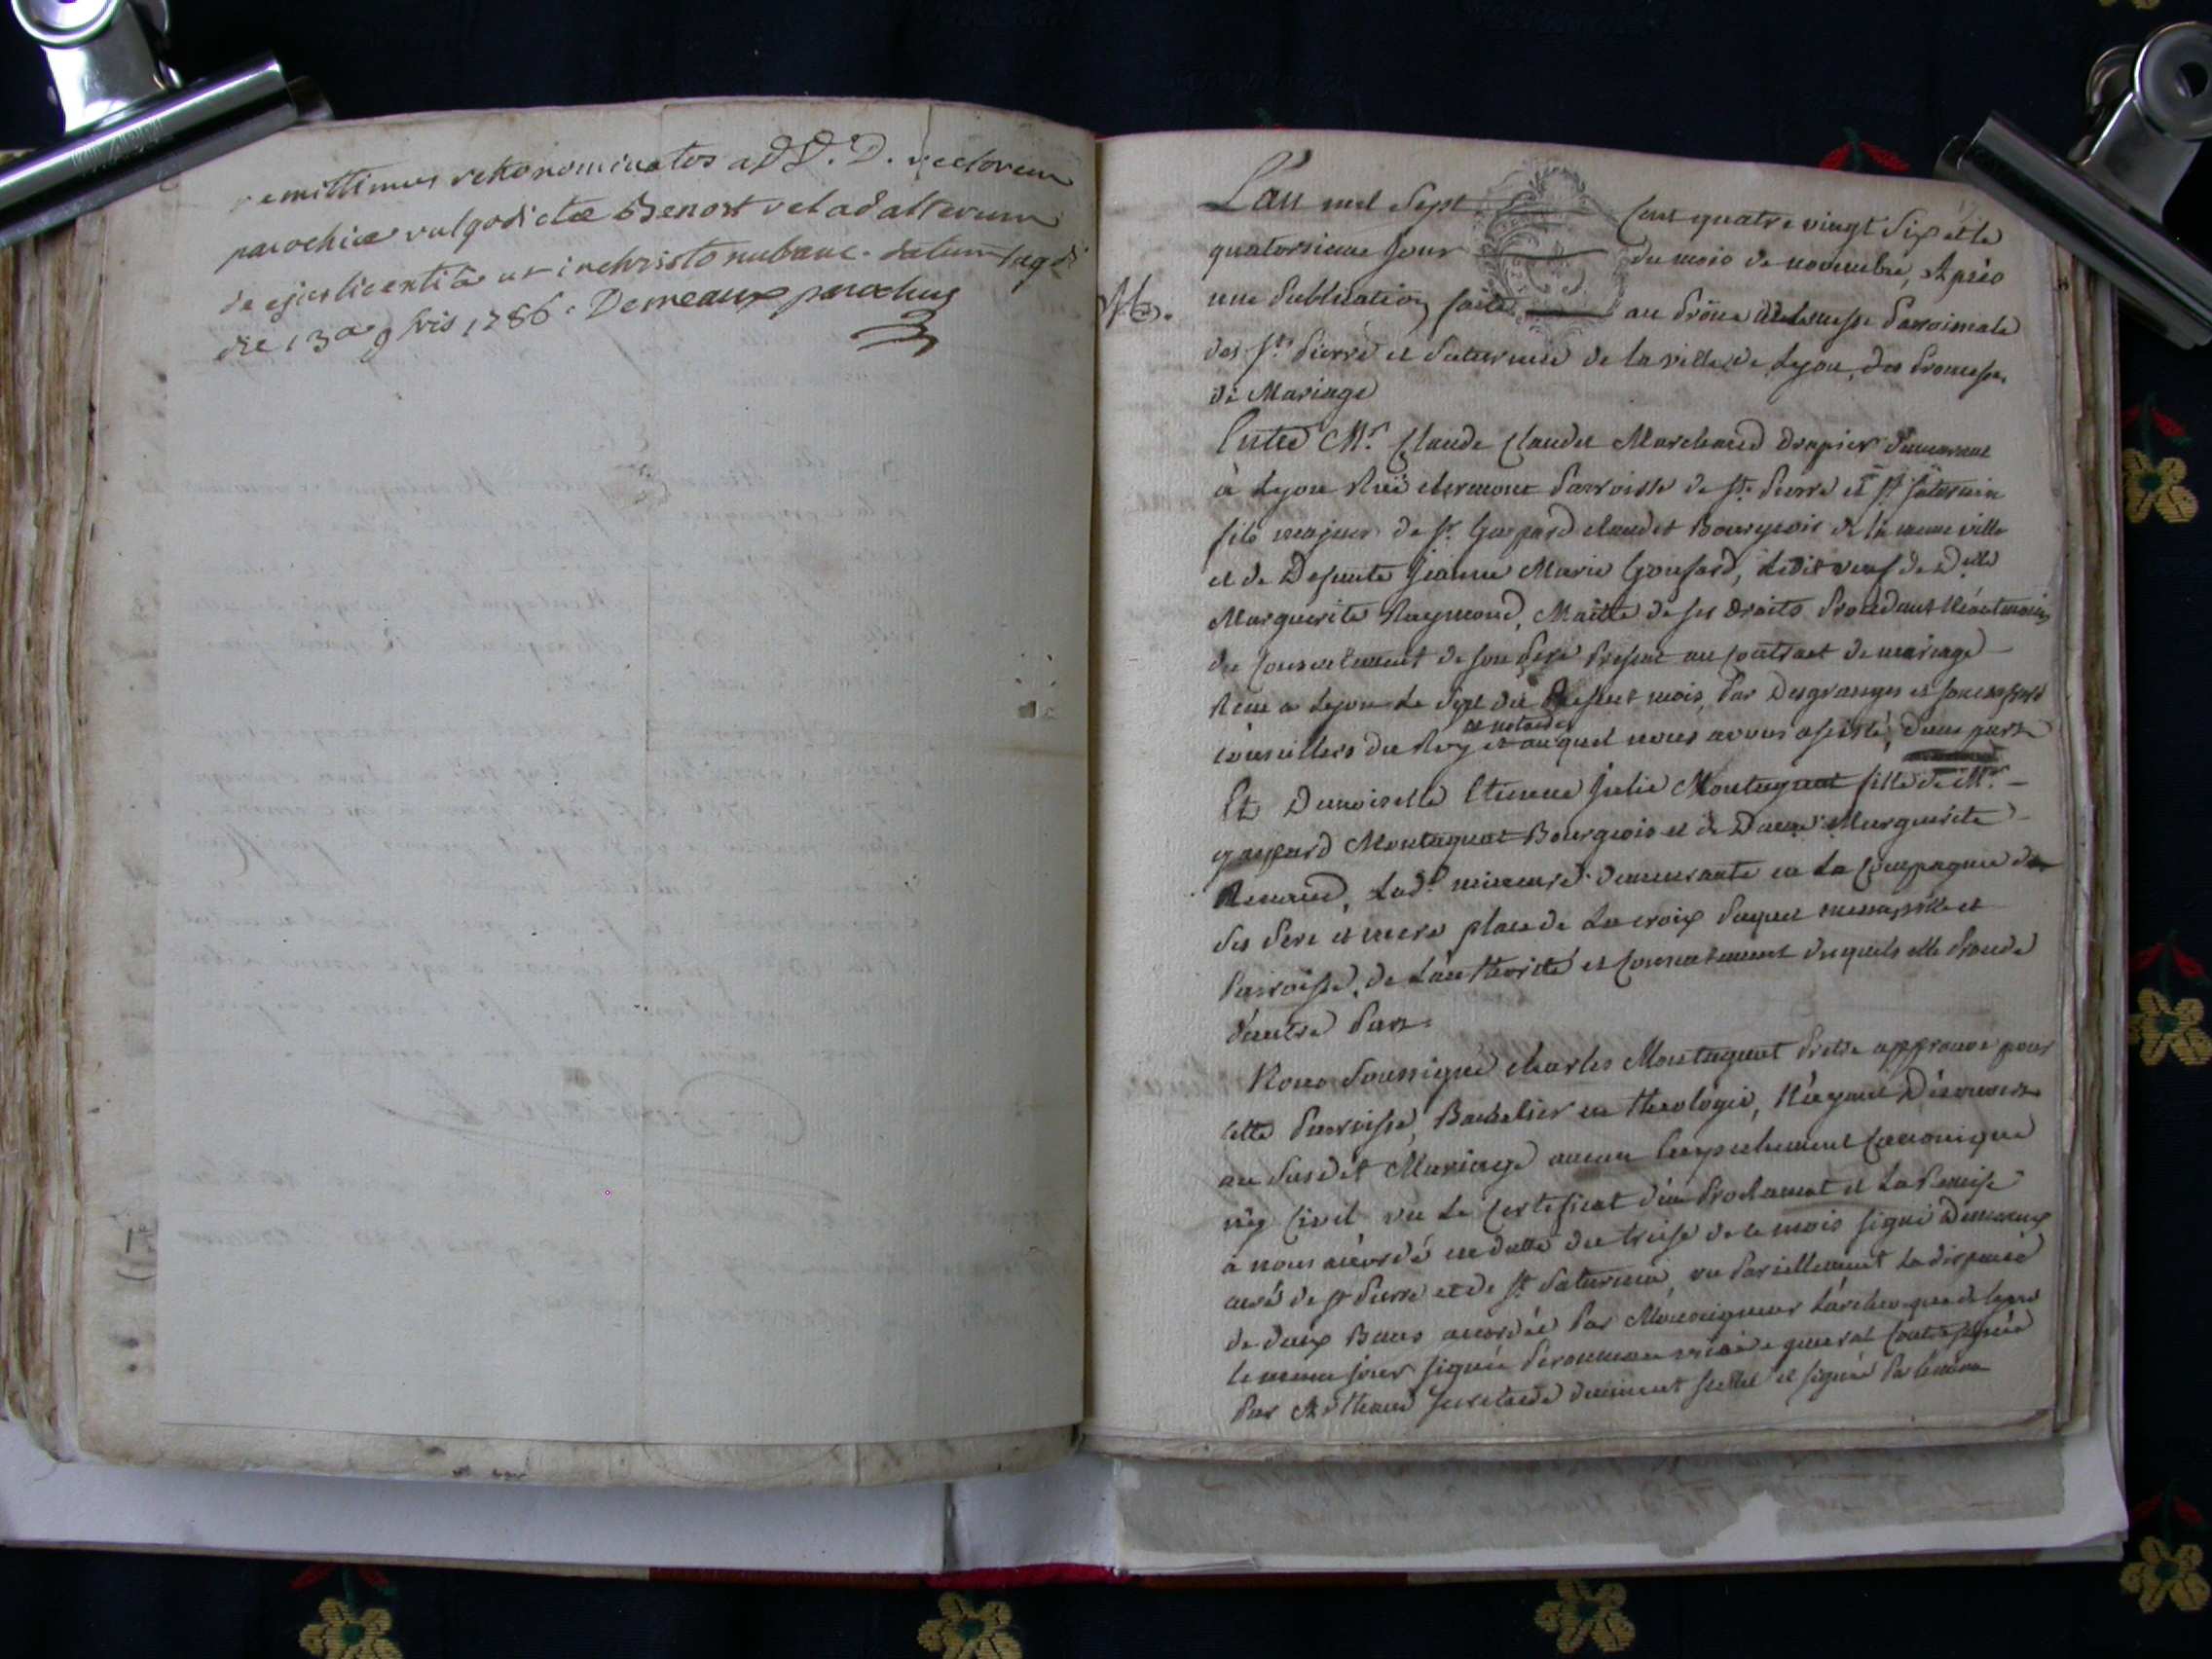 remittimus retronominatos ad D. D. rectorem
parochiæ vulgo dictæ Benost vel ad alterum
de ejus licentiâ ut in christo nubant. datum lugd
die 13a 9bris 1786. Demeaux parochus
L'an mil Sept Cent quatre vingt Six et le
quatorzieme Jour du mois de novembre, Après
une Publication faite au Prône de la messe Parroissiale
des St. Pierre et Saturnin de la ville de Lyon, des Promesses
de Mariage
Entre Mr. Claude Claudet Marchand Drapier demeurant
à Lyon Ruë clermont Parroisse de St. Pierre et St. Saturnin
fils majeur de Sr. Gaspard claudet Bourgeois de la meme ville
et de Defunte Jeanne Marie Goufard, Ledit veuf de Dlle
Marguerite Raymond, Maitre de ses Droits Procédant Néantmoins
du Consentement de son Pere Présent au Contract de mariage
Reçu a Lyon Le Sept du Present mois, Par Desgranges et son confrere
Conseillers du Roy et notaires auquel nous avons assisté, d'une part
Et Demoiselle Etienne Julie Montagnat fille de Mr.
gaspard Montagnat Bourgeois et de Dame Marguerite
Renaud, Lad.e mineure demeurante en La Compagnie de
ses Pere et mere place de La croix Paquet meme ville et
Parroisse, de L'authorité et Consentement desquels elle Procede
d'autre Part.
Nous Soussigné charles Montagnat Prêtre approuvé pour
cette Parroisse, Bachelier en theologie, N'ayant Découvert
au Susdit Mariage aucun Empechement Canonique
ny Civil vu Le Certificat d'un Proclamat et La Remise
a nous accordé en datte du treise de ce mois signé Demeaux
curé de St Pierre et de St. Saturnin, vu Pareillement La dispense
de deux Bans accordée Par Monseigneur L'archevêque de Lyon
le meme jour signée vicaire general Contresignée
Par Secretaire duement scellé et signé